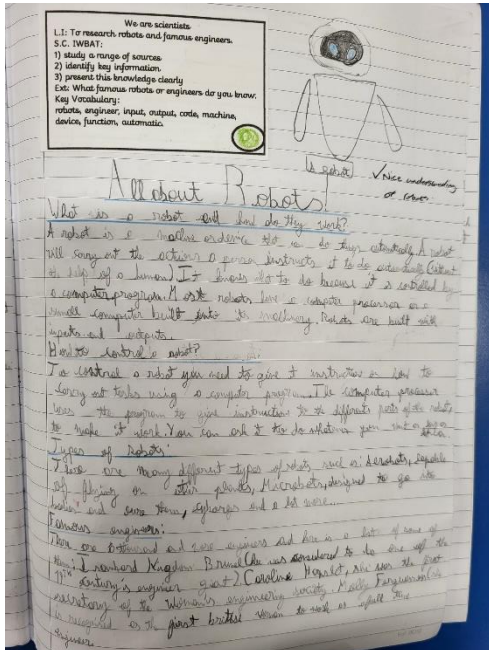 We are scientists
L.I: To research robots and famous engineers.
S.C. IWBAT:
1) study a range of sources
2) identify key information.
3) present this knowledge clearly
Ext: What famous robots or engineers do you know.
Key Vocabulary:
robots, engineer, input, output, code, machine,
device, function, automatic.
A robot
✓ Nice understanding
of
All about Robots!
What is a robot and how do they work?
A robot is a machine or device that is do things automatically. A robot
will carry out the actions a person instructs it to do automatically (without
the help of a human). It knows what to do because it is controlled by
a computer program. Most robots have a computer processor or a
small computer built into its machinery. Robots are built with
inputs and outputs.
How to control a robot?
To control a robot you need to give it instructions on how to
carry out tasks using a computer program. The computer processor
uses the program to give instructions to the different parts of the robot
to make it work. You can ask it to do whatever you want
Types of robots:
There are many different types of robots such as: Aerobots, capable
of flying on other planets, Microbots, designed to go into
and a lot more...
Famous engineers:
There are and engineers and here is a list of some of
them: Kingdom Brunel (he was considered to be one of the
century's engineer great). Caroline she was the first
secretary of the Women's engineering society. Molly Fergusson
is recognized as the first british woman to
engineer.